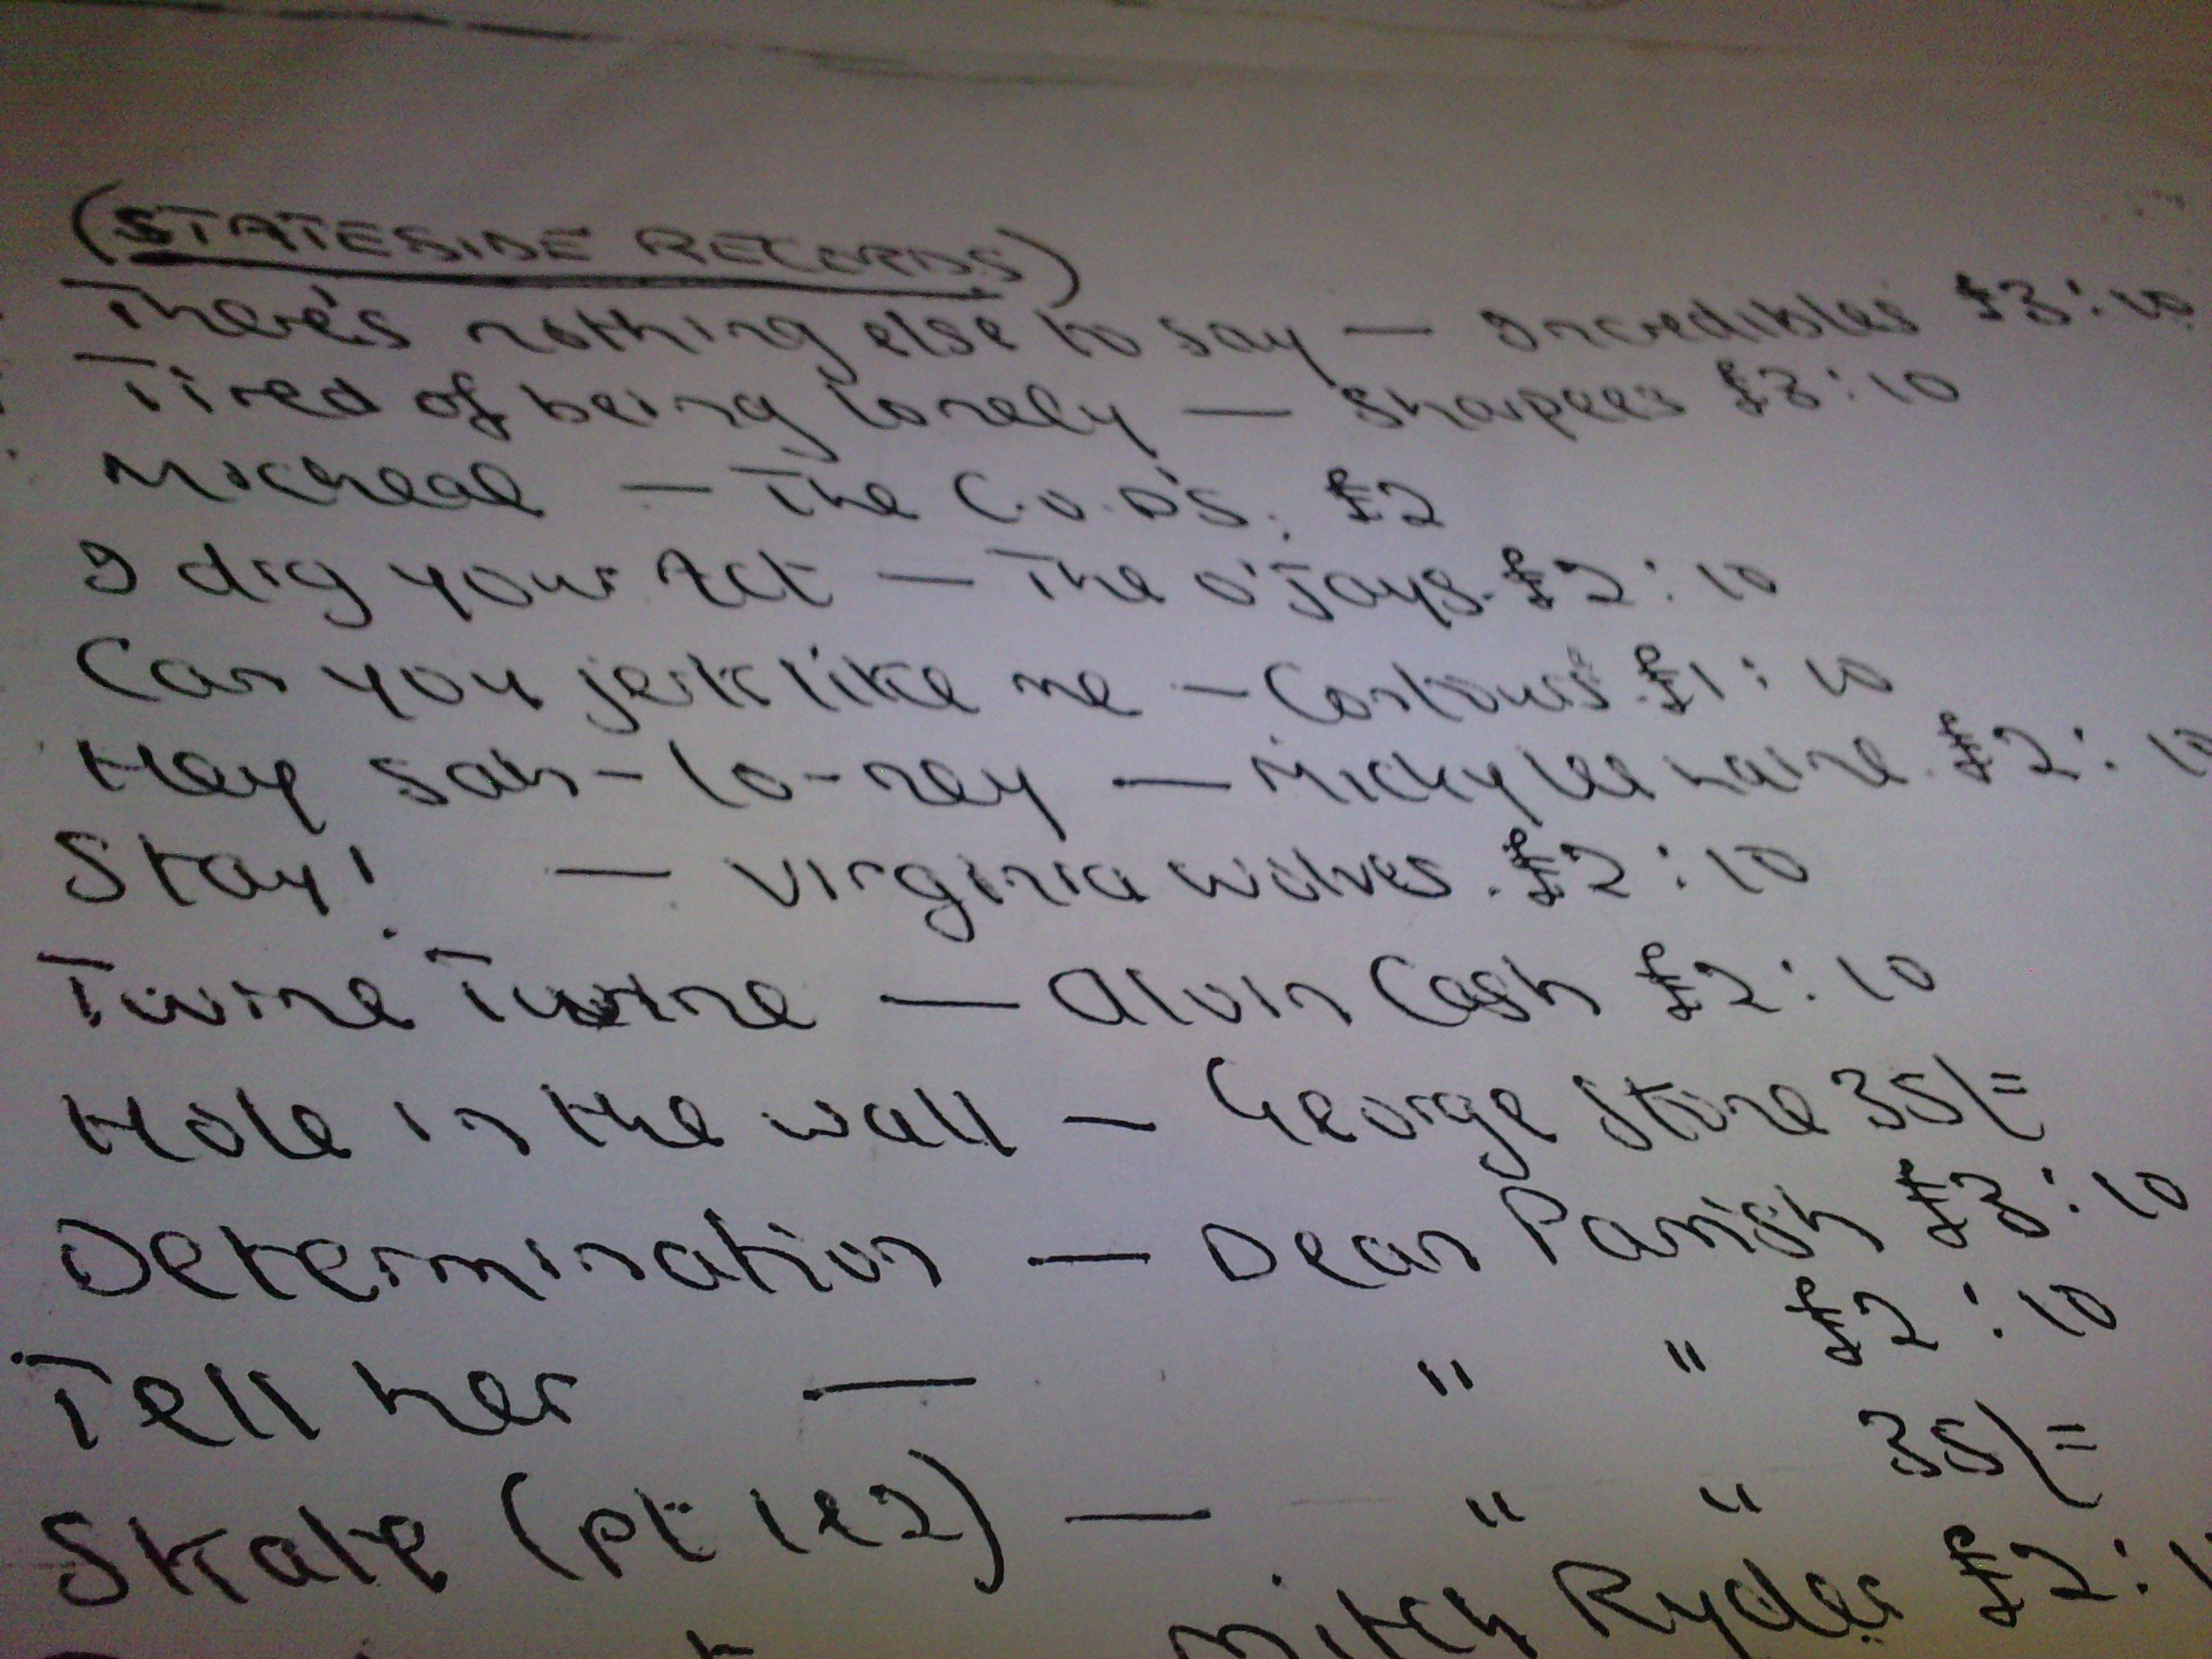 (STATESIDE RECORDS)
There's nothing else to say — Incredibles £3:10
Tired of being lonely — Sharpees £3:10
Micheal — The C.O.D's. £2
I dig your Act — The O'Jays. £2:10
Can you jerk like me — Contours £1:10
Hey sah-lo-ney — Micky lee Laine. £2:10
Stay! — Virginia Wolves. £2:10
Twine Twine — Alvin Cash £2:10
Hole in the wall — George Stone 35/=
Determination — Dean Parrish £3:10
Tell her — " " £2:10
Skate (pt 1&2) — " " 35/=
Mitch Ryder £2:1